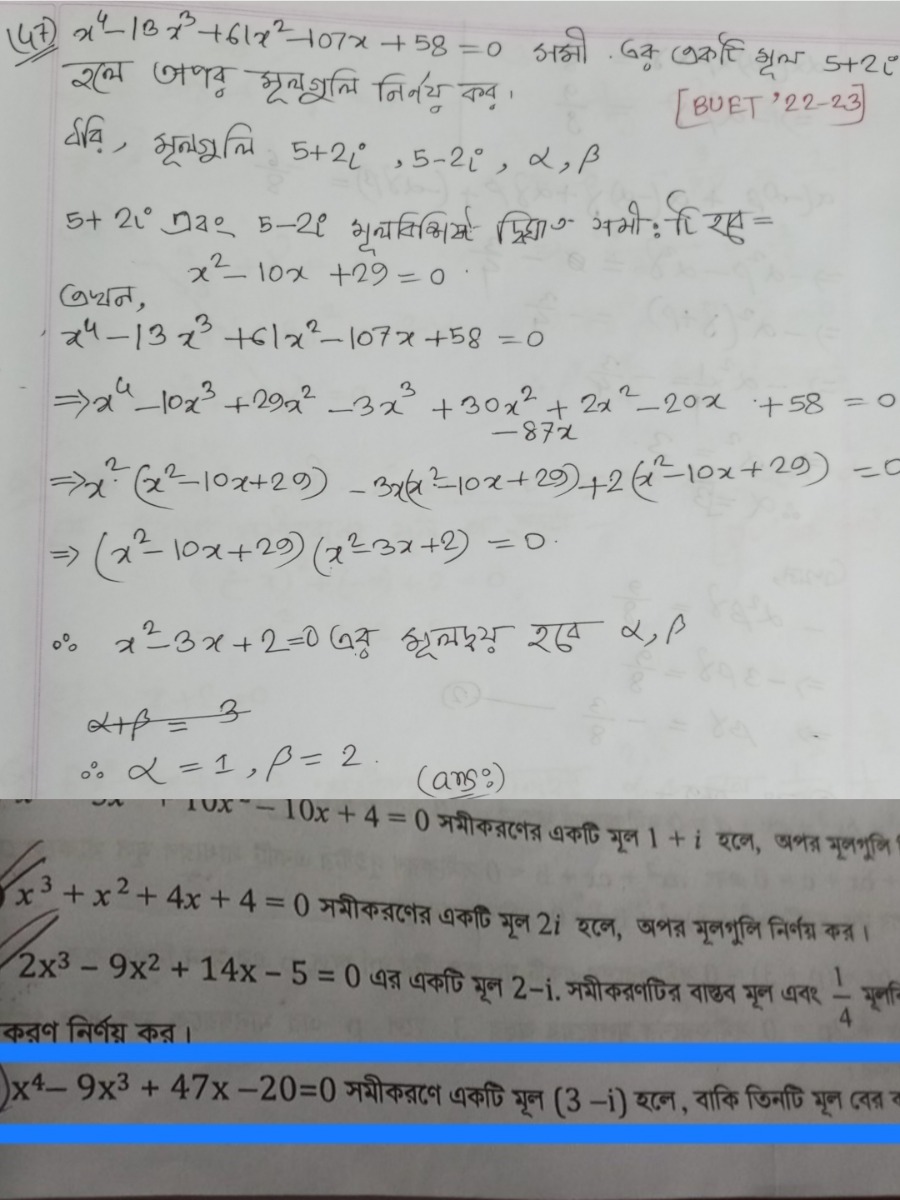 (47) x⁴-13x³+61x²-107x+58=0 সমী. এর একটি মূল 5+2i
হলে অপর মূলগুলি নির্ণয় কর।
[BUET '22-23]
ধরি, মূলগুলি 5+2i, 5-2i, α, β
5+2i এবং 5-2i মূলবিশিষ্ট দ্বিঘাত সমী: টি হবে=
x²-10x+29=0.
এখন,
x⁴-13x³+61x²-107x+58=0
⇒x⁴-10x³+29x²-3x³+30x²+2x²-20x+58=0
-87x
⇒x²(x²-10x+29)-3x(x²-10x+29)+2(x²-10x+29)=0
⇒(x²-10x+29)(x²-3x+2)=0.
∴ x²-3x+2=0 এর মূলদ্বয় হবে α, β
α+β=3
∴ α=1, β=2.
(ans:)
10x² - 10x + 4 = 0 সমীকরণের একটি মূল 1 + i হলে, অপর মূলগুলি
x³ + x² + 4x + 4 = 0 সমীকরণের একটি মূল 2i হলে, অপর মূলগুলি নির্ণয় কর।
2x³ - 9x² + 14x - 5 = 0 এর একটি মূল 2-i. সমীকরণটির বাস্তব মূল এবং 1/4
করণ নির্ণয় কর।
)x⁴- 9x³ + 47x -20=0 সমীকরণে একটি মূল (3 -i) হলে, বাকি তিনটি মূল বের